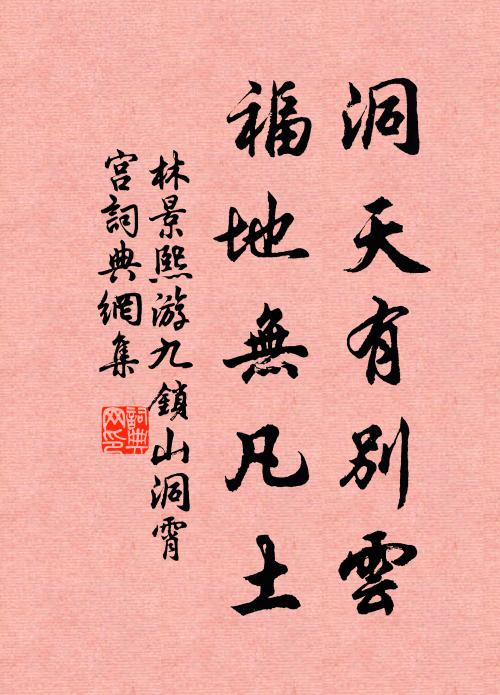 洞天有別雲
福地無凡土
林景熙游九鎖山洞霄
宮詞典網集
詞典
网印